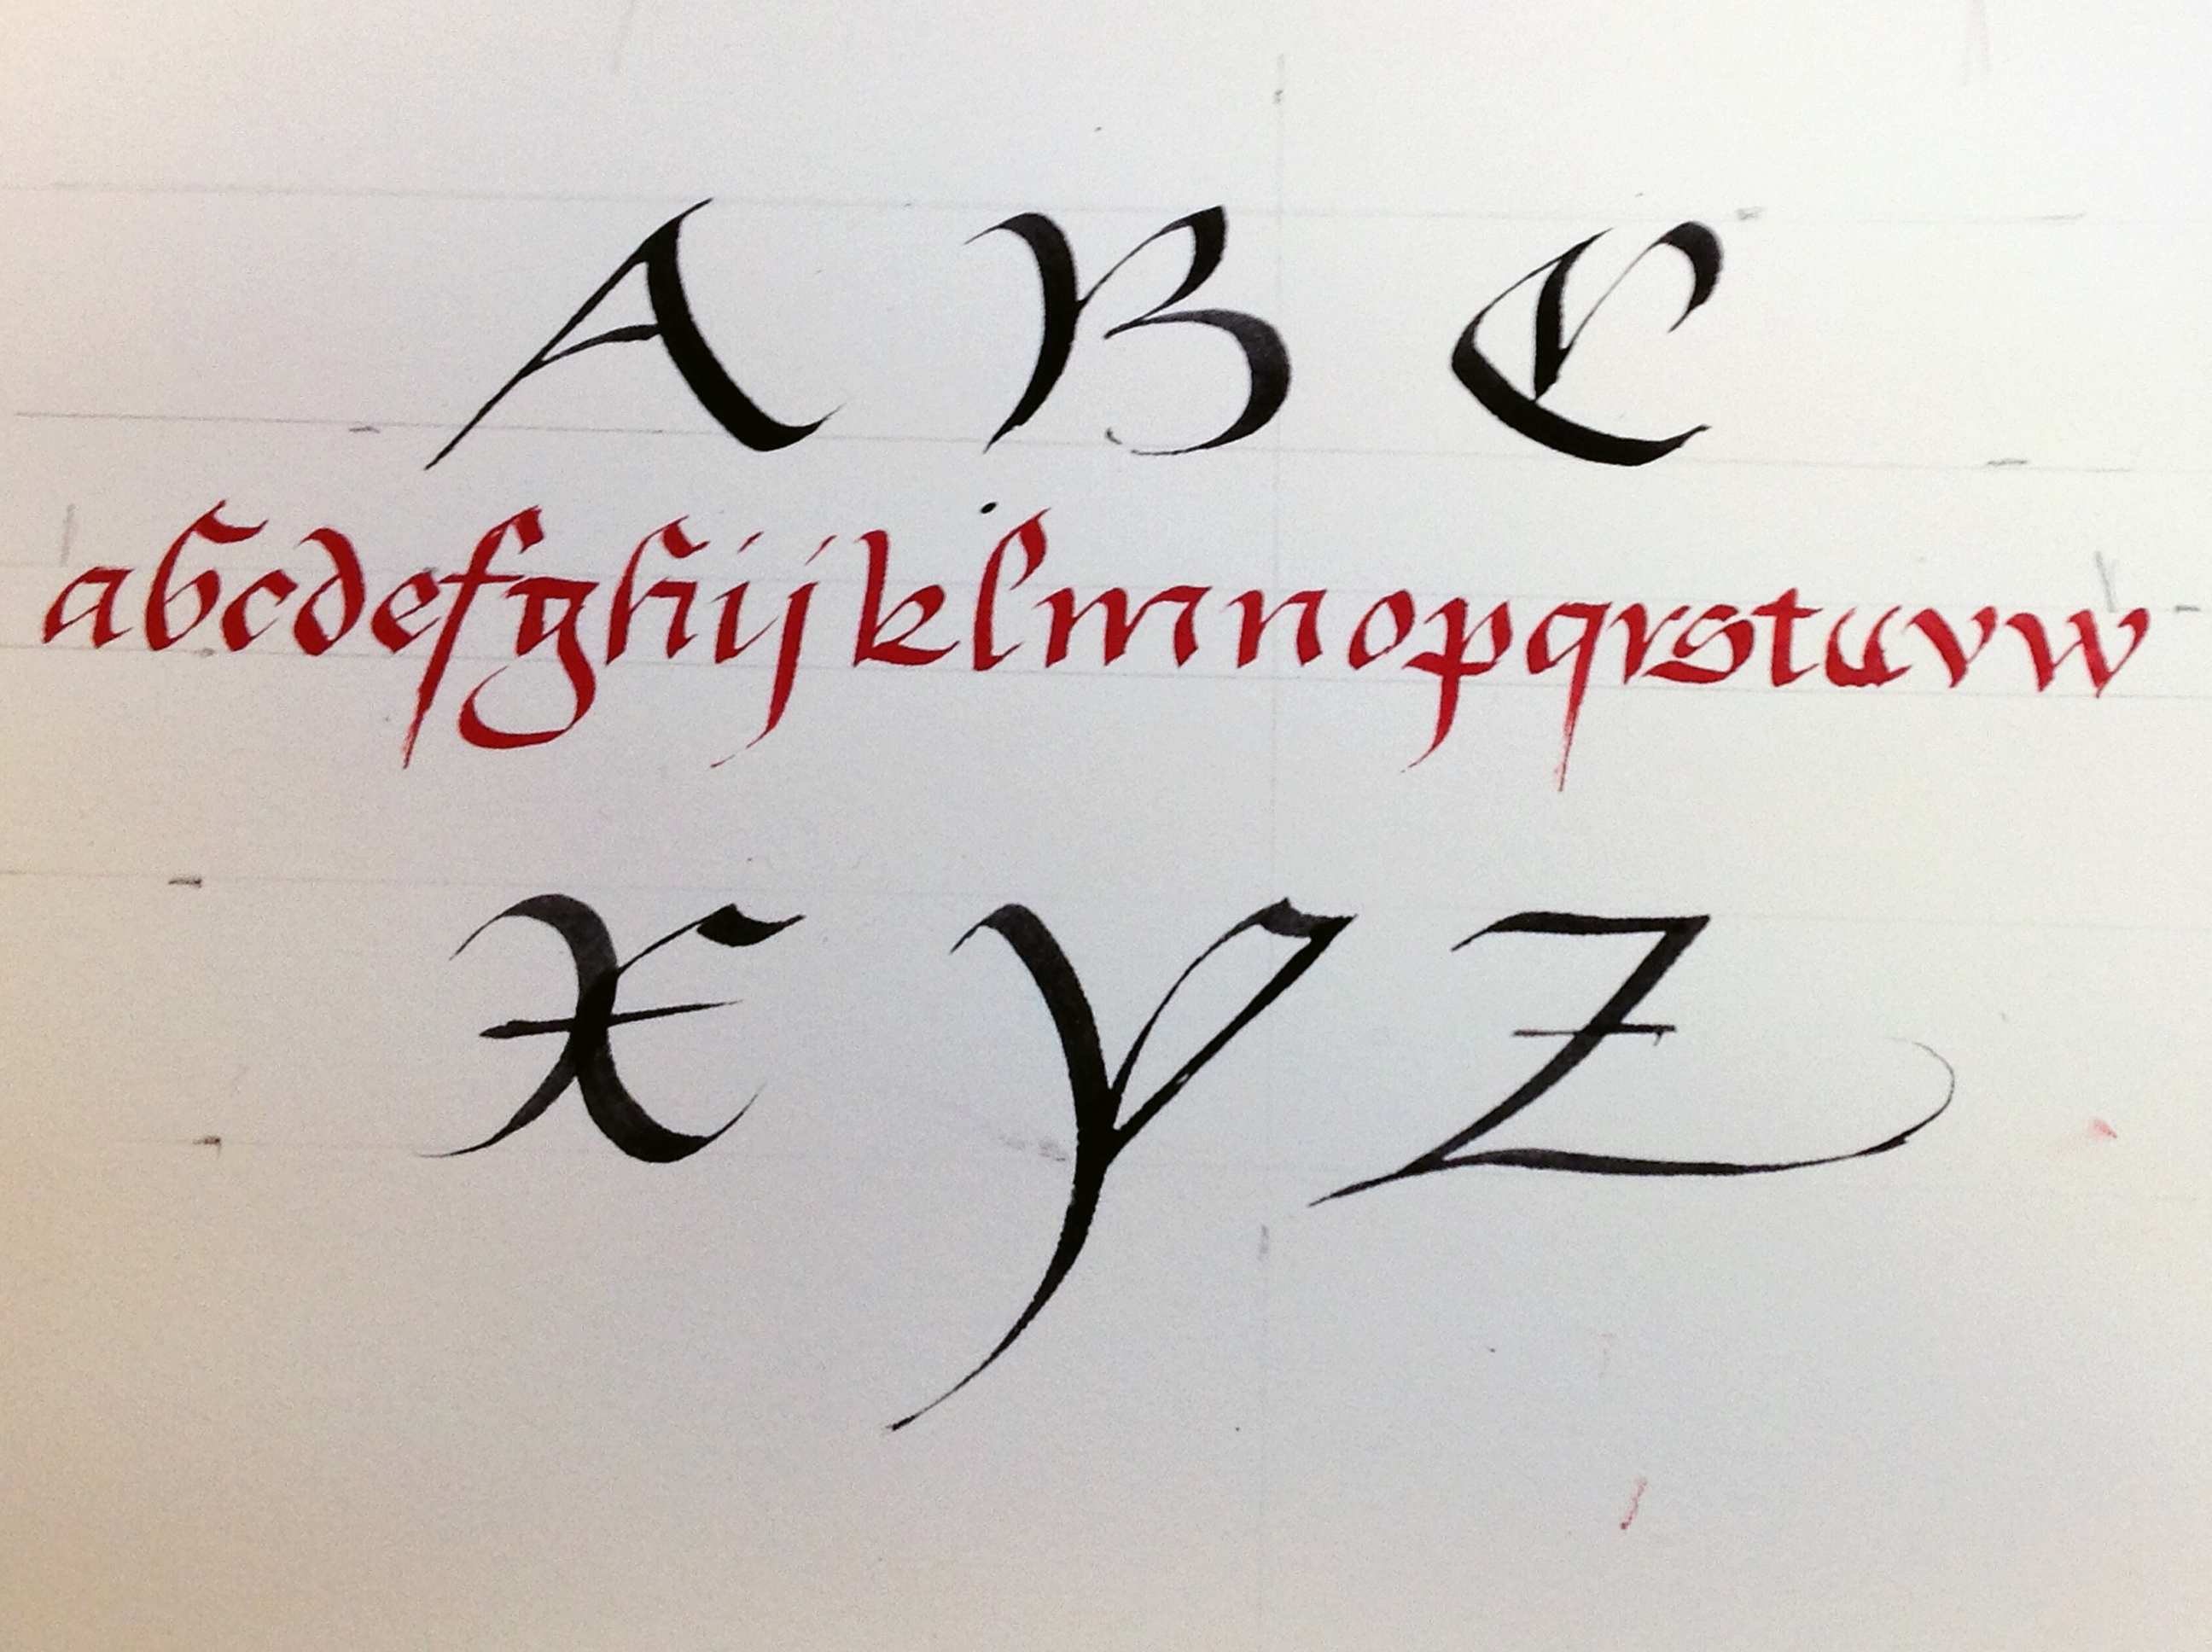 A B C
abcdefghijklmnopqrstuvw
X Y Z